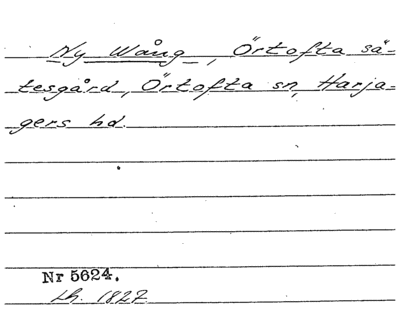 Ny Wång, Örtofta sä-
tesgård, Örtofta sn, Harja-
gers hd.
Nr 5624.
Lh. 1827.